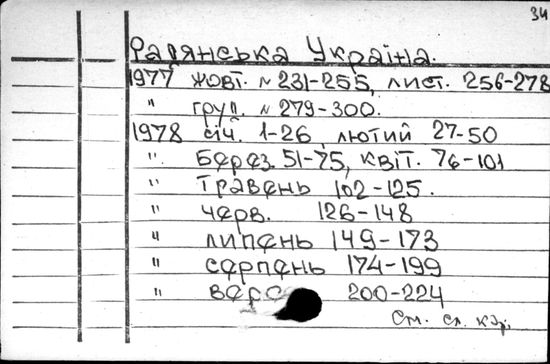 34
Радянська Україна.
1977 жовт. № 231-255, лист. 256-278
" груд. № 279-300.
1978 січ. 1-26, лютий 27-50
" Берез. 51-75, квіт. 76-101
" Травень 102-125.
" черв. 126-148
" липень 149-173
" серпень 174-199
" 200-224
См. сл. кар.